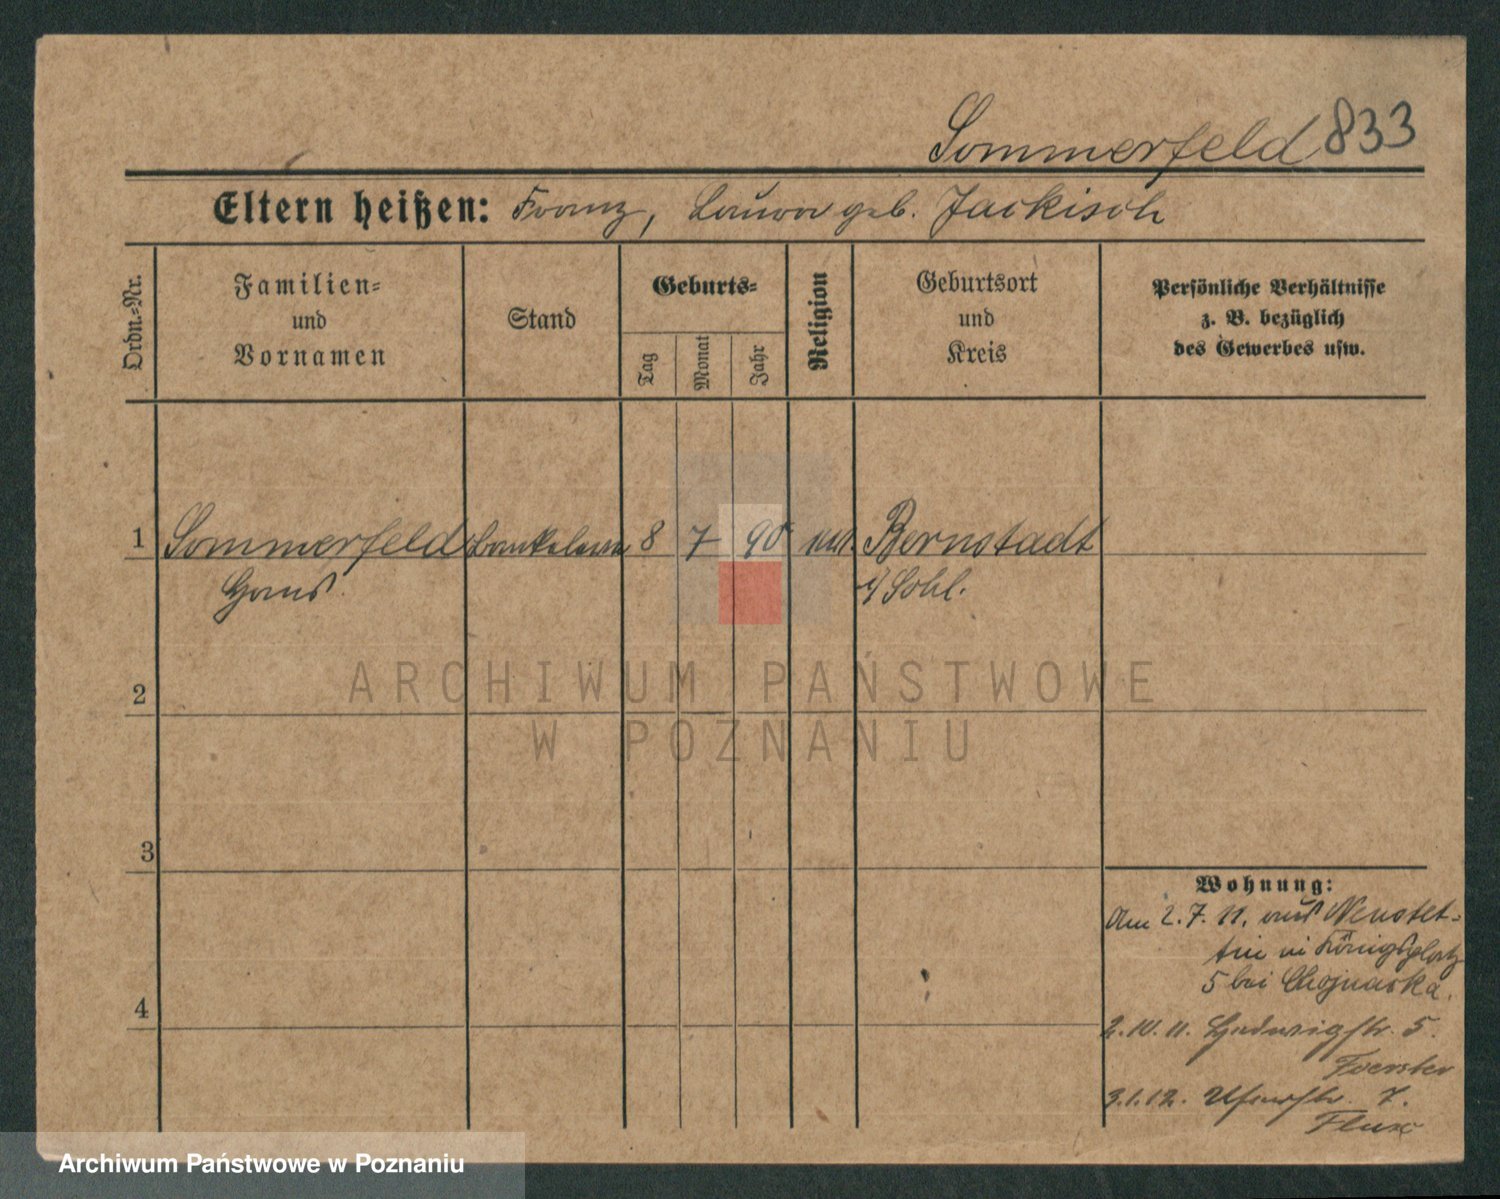 Sommerfeld 833
Eltern heißen: Franz, Laura geb. Jackisch
Ordn.-Nr.
Familien-
und
Vornamen
Stand
Geburts-
Tag
Monat
Jahr
Religion
Geburtsort
und
Kreis
Persönliche Verhältnisse
z. B. bezüglich
des Gewerbes usw.
1 Sommerfeld 8 7 90 Bernstadt
Hans
i/ Schl.
2
ARCHIWUM PAŃSTWOWE
W POZNANIU
3
4
Wohnung:
Am 2.7.11. aus Neustet-
tin in Königsplatz
5 bei Chojnacka.
2.10.11. Hedwigstr. 5.
Foerster
3.1.12. 7.
Archiwum Państwowe w Poznaniu